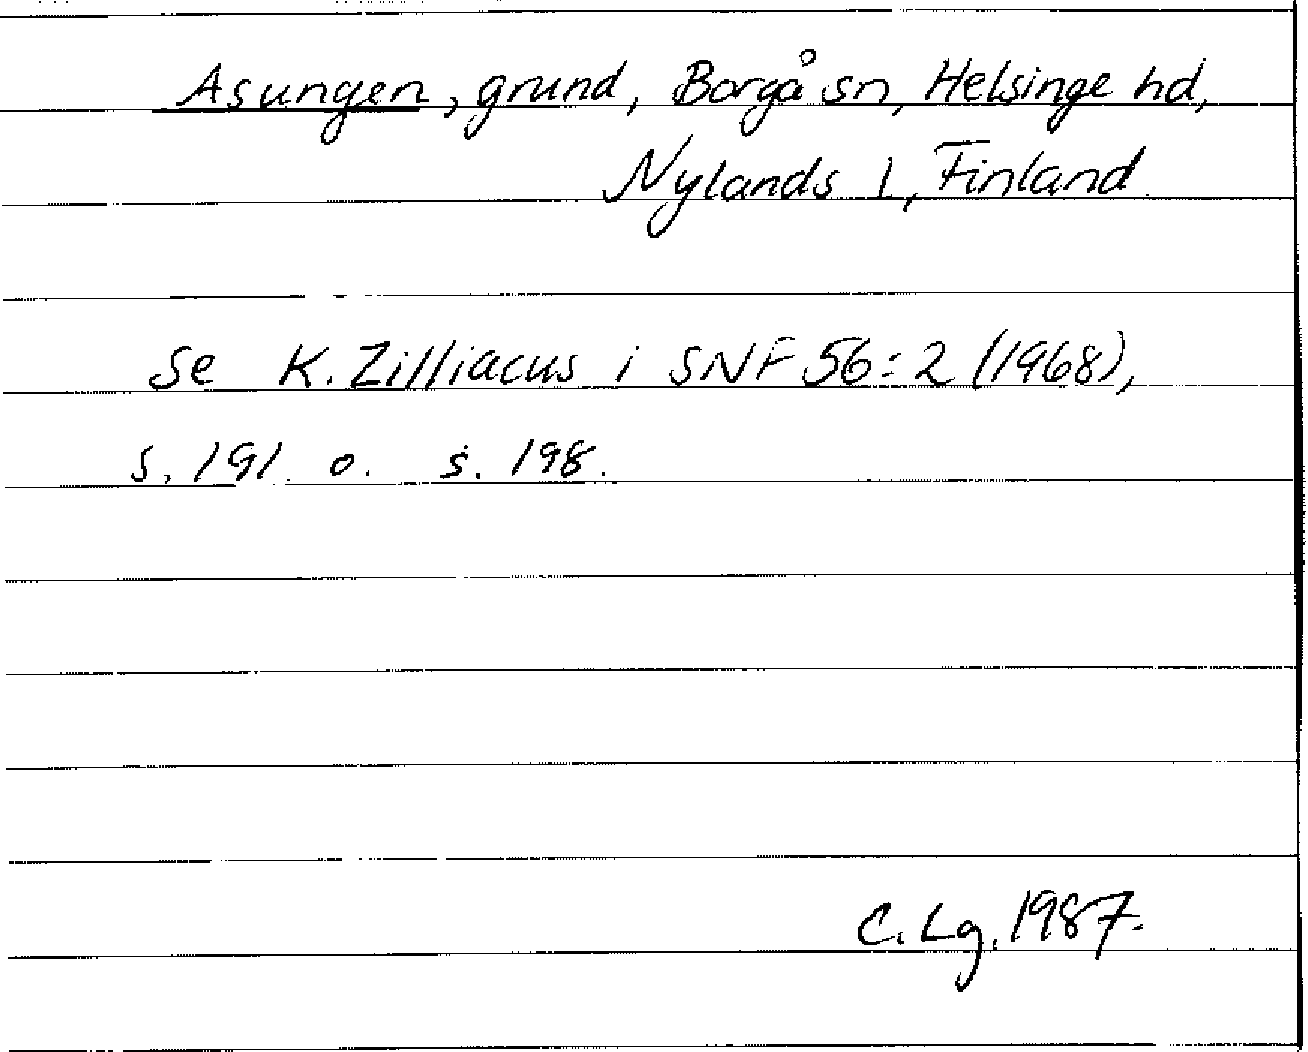 Asungen, grund, Borgå sn, Helsinge hd,
Nylands l, Finland.
Se K. Zilliacus i SNF 56:2 (1968),
s. 191. o. s. 198.
C. Lg. 1987.